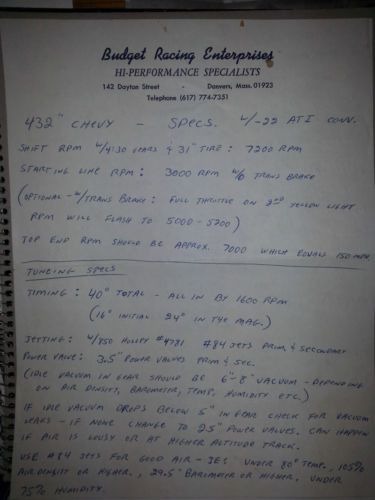 Budget Racing Enterprises
HI-PERFORMANCE SPECIALISTS
142 Dayton Street - Danvers, Mass. 01923
Telephone (617) 774-7351
432" CHEVY - SPECS. W/-22 ATI CONV.
SHIFT RPM W/4:30 GEARS & 31" TIRE: 7200 RPM
STARTING LINE RPM: 3000 RPM W/O TRANS BRAKE
(OPTIONAL - W/TRANS BRAKE: FULL THROTTLE ON 2ND YELLOW LIGHT
RPM WILL FLASH TO 5000-5200)
TOP END RPM SHOULD BE APPROX. 7000 WHICH EQUALS 150 MPH
TUNEING SPECS
TIMING: 40° TOTAL - ALL IN BY 1600 RPM
(16° INITIAL 24° IN THE MAG.)
JETTING: W/850 HOLLEY #4781 #84 JETS PRIM. & SECONDARY
POWER VALVE: 3.5" POWER VALVES PRIM & SEC.
(IDLE VACUUM IN GEAR SHOULD BE 6"-8" VACUUM - DEPENDING
ON AIR DENSITY, BAROMETER, TEMP, HUMIDITY ETC.)
IF IDLE VACUUM DROPS BELOW 5" IN GEAR CHECK FOR VACUUM
LEAKS - IF NONE CHANGE TO 2.5" POWER VALVES. CAN HAPPEN
IF AIR IS LOUSY OR AT HIGHER ALTITUDE TRACK.
USE #84 JETS FOR GOOD AIR - IE: UNDER 80° TEMP., 105%
AIR DENSITY OR HIGHER, 29.5" BAROMETER OR HIGHER, UNDER
75% HUMIDITY.